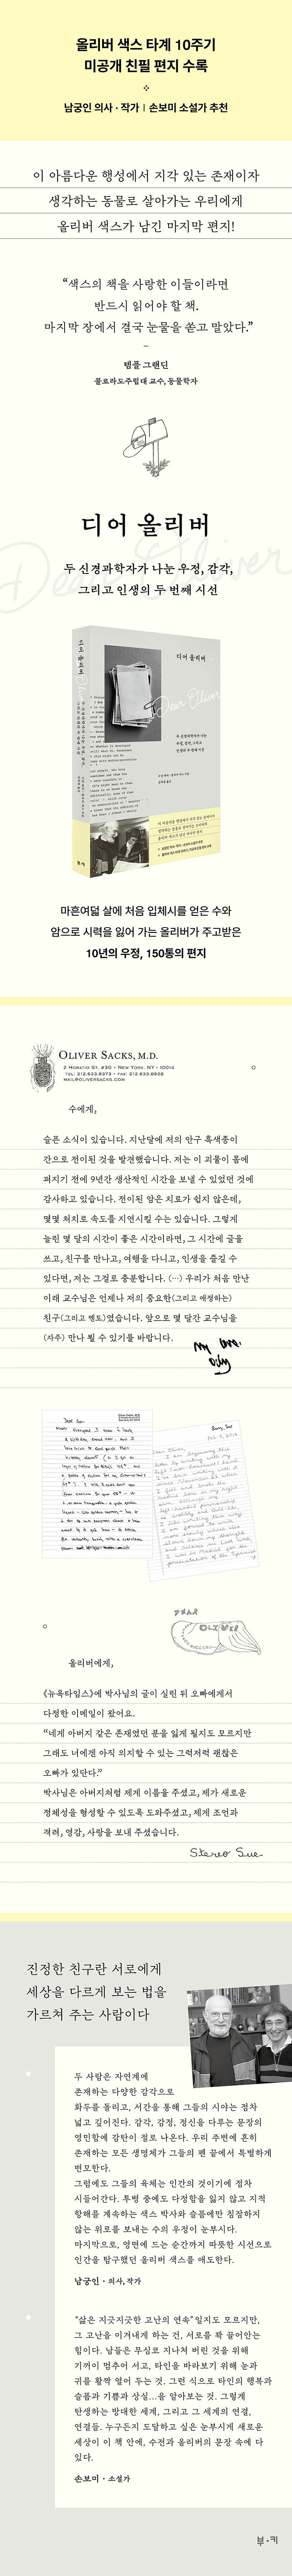 올리버 색스 타계 10주기
미공개 친필 편지 수록
남궁인 의사 · 작가 | 손보미 소설가 추천
이 아름다운 행성에서 지각 있는 존재이자
생각하는 동물로 살아가는 우리에게
올리버 색스가 남긴 마지막 편지!
“색스의 책을 사랑한 이들이라면
반드시 읽어야 할 책.
마지막 장에서 결국 눈물을 쏟고 말았다.”
–
템플 그랜딘
콜로라도주립대 교수, 동물학자
디어 올리버
Dear Oliver
두 신경과학자가 나눈 우정, 감각,
그리고 인생의 두 번째 시선
디어 올리버
Dear Oliver
두 신경과학자가 나눈
우정, 감각, 그리고
인생의 두 번째 시선
마흔여덟 살에 처음 입체시를 얻은 수와
암으로 시력을 잃어 가는 올리버가 주고받은
10년의 우정, 150통의 편지
OLIVER SACKS, M.D.
2 HORATIO ST. #3G • NEW YORK, NY • 10014
TEL: 212.633.8373 • FAX: 212.633.8928
MAIL@OLIVERSACKS.COM
수에게,
슬픈 소식이 있습니다. 지난달에 저의 안구 흑색종이
간으로 전이된 것을 발견했습니다. 저는 이 괴물이 몸에
퍼지기 전에 9년간 생산적인 시간을 보낼 수 있었던 것에
감사하고 있습니다. 전이된 암은 치료가 쉽지 않은데,
몇몇 처치로 속도를 지연시킬 수는 있습니다. 그렇게
늘린 몇 달의 시간이 좋은 시간이라면, 그 시간에 글을
쓰고, 친구를 만나고, 여행을 다니고, 인생을 즐길 수
있다면, 저는 그걸로 충분합니다. (…) 우리가 처음 만난
이래 교수님은 언제나 저의 중요한(그리고 애정하는)
친구(그리고 멘토)였습니다. 앞으로 몇 달간 교수님을
(자주) 만나 뵐 수 있기를 바랍니다.
Dear Sue:
Dear Oliver,
DEAR
OLIVER
올리버에게,
《뉴욕타임스》에 박사님의 글이 실린 뒤 오빠에게서
다정한 이메일이 왔어요.
“네게 아버지 같은 존재였던 분을 잃게 될지도 모르지만
그래도 너에겐 아직 의지할 수 있는 그럭저럭 괜찮은
오빠가 있단다.”
박사님은 아버지처럼 제게 이름을 주셨고, 제가 새로운
정체성을 형성할 수 있도록 도와주셨고, 제게 조언과
격려, 영감, 사랑을 보내 주셨습니다.
Stereo Sue
진정한 친구란 서로에게
세상을 다르게 보는 법을
가르쳐 주는 사람이다
두 사람은 자연계에
존재하는 다양한 감각으로
화두를 돌리고, 서간을 통해 그들의 시야는 점차
넓고 깊어진다. 감각, 감정, 정신을 다루는 문장의
영민함에 감탄이 절로 나온다. 우리 주변에 흔히
존재하는 모든 생명체가 그들의 펜 끝에서 특별하게
변모한다.
그럼에도 그들의 육체는 인간의 것이기에 점차
시들어간다. 투병 중에도 다정함을 잃지 않고 지적
항해를 계속하는 색스 박사와 슬픔에만 침잠하지
않는 위로를 보내는 수의 우정이 눈부시다.
마지막으로, 영면에 드는 순간까지 따뜻한 시선으로
인간을 탐구했던 올리버 색스를 애도한다.
남궁인 • 의사, 작가
“삶은 지긋지긋한 고난의 연속”일지도 모르지만,
그 고난을 이겨내게 하는 건, 서로를 꽉 끌어안는
힘이다. 남들은 무심코 지나쳐 버린 것을 위해
기꺼이 멈추어 서고, 타인을 바라보기 위해 눈과
귀를 활짝 열어 두는 것. 그런 식으로 타인의 행복과
슬픔과 기쁨과 상실…을 알아보는 것. 그렇게
탄생하는 방대한 세계, 그리고 그 세계의 연결,
연결들. 누구든지 도달하고 싶은 눈부시게 새로운
세상이 이 책 안에, 수전과 올리버의 문장 속에 다
있다.
손보미 • 소설가
부·키